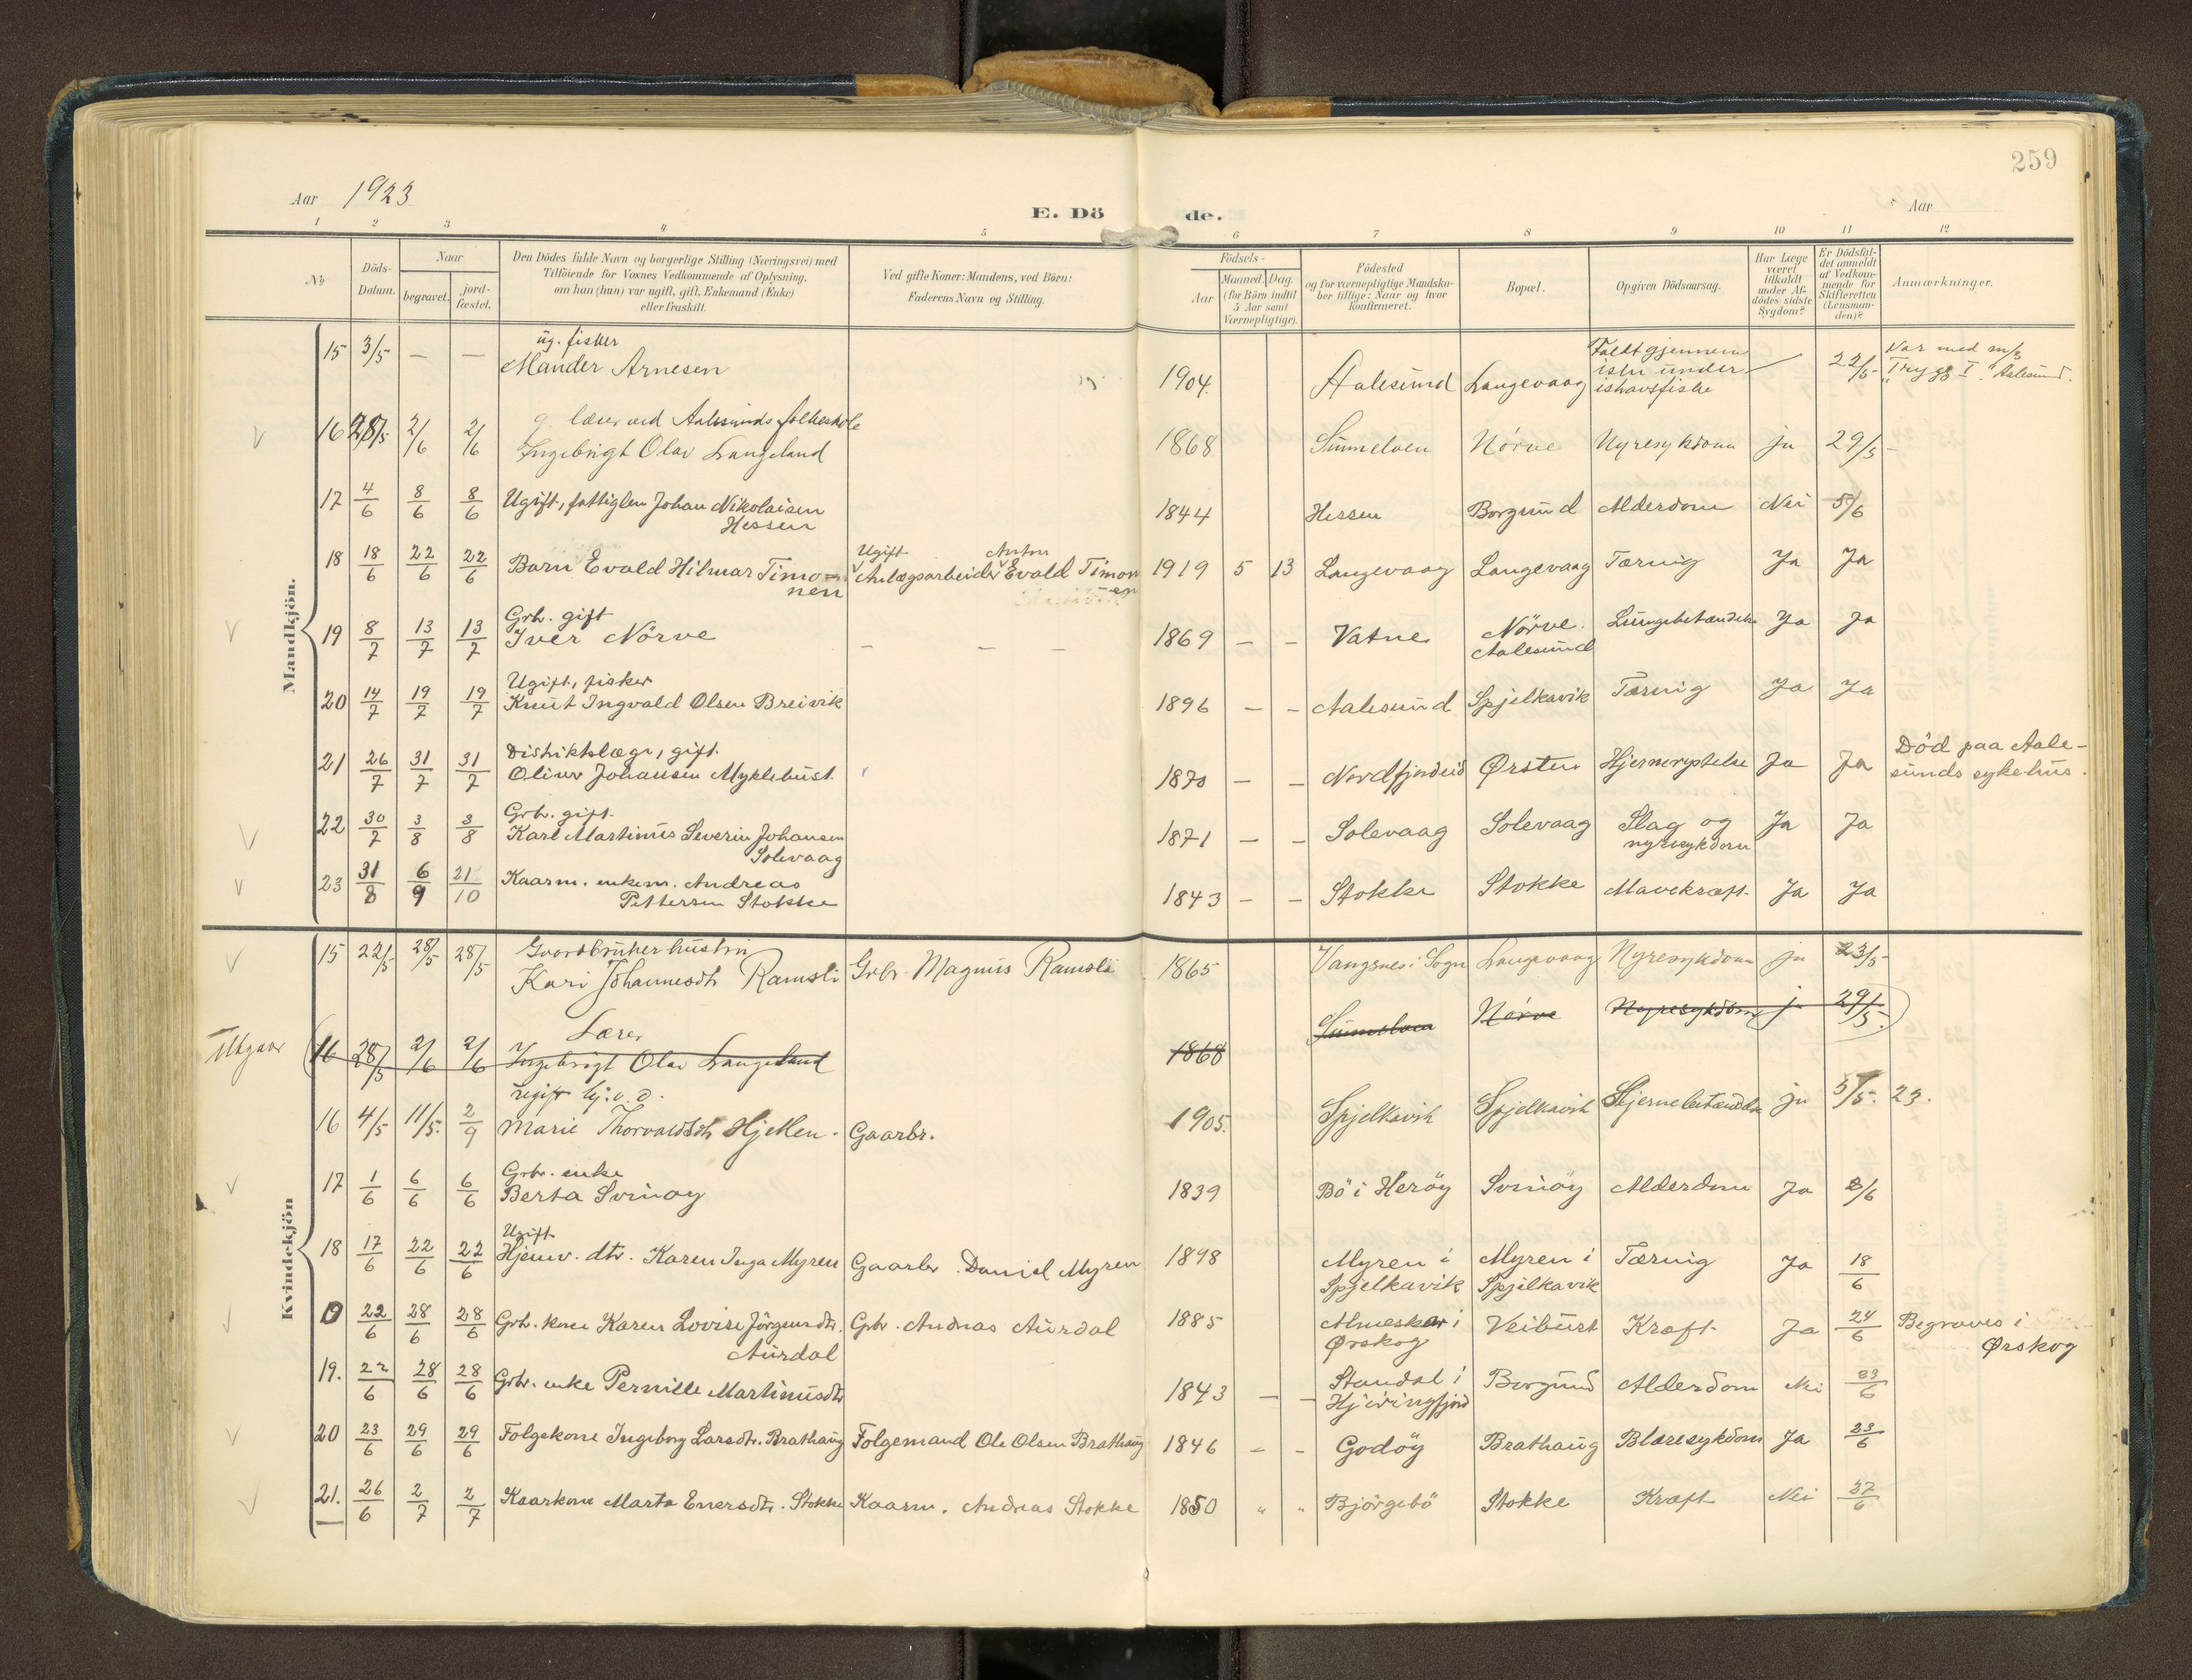 259
Aar 1923
E. Döde.
Aar
1 2 3 4 5 6 7 8 9 10 11 12
No
Döds-Datum.
Naar
begravet.
jord-fæstet.
Den Dödes fulde Navn og borgerlige Stilling (Næringsvei) med
Tilföiende for Voxnes Vedkommende af Oplysning,
om han (hun) var ugift, gift, Enkemand (Enke)
eller fraskilt.
Ved gifte Koner: Mandens, ved Börn:
Faderens Navn og Stilling.
Födsels-
Aar
Maaned. Dag.
(for Börn indtil
5 Aar samt
Værnepligtige).
Födested
og for værnepligtige Mandska-
ber tillige: Naar og hvor
Konfirmeret.
Bopæl.
Opgiven Dödsaarsag.
Har Læge
været
tilkaldt
under Af-
dödes sidste
Sygdom?
Er Dödsfal-
det anmeldt
af Vedkom-
mende for
Skifteretten
(Lensman-
den)?
Anmærkninger.
Mandkjön.
15 3/5 — — ug. fisker
Mander Arnesen 1904. Aalesund Langevaag Faldt gjennem
isen under
ishavsfiske — 22/5 Var med m/s
"Trygg I." Aalesund.
16 28/5 2/6 2/6 g. lærer ved Aalesunds folkeskole
Ingebrigt Olav Langeland 1868 Sunnelven Nörve Nyresykdom ja 29/5
17 4/6 8/6 8/6 Ugift, fattiglem Johan Nikolaisen
Hessen 1844 Hessen Borgund Alderdom Nei 5/6
18 18/6 22/6 22/6 Barn Evald Hilmar Timo-
nen Ugift Anlægsarbeider Anton Evald Timon
en 1919 5 13 Langevaag Langevaag Tæring Ja Ja
19 8/7 13/7 13/7 Grb. gift
Iver Nörve — — — 1869 — — Vatne Nörve.
Aalesund Lungebetændelse Ja Ja
20 14/7 19/7 19/7 Ugift, fisker
Knut Ingvald Olsen Breivik 1896 — — Aalesund Spjelkavik Tæring Ja Ja
21 26/7 31/7 31/7 Distriktslæge, gift.
Oliver Johansen Myklebust. 1870 — — Nordfjordeid Ørsten Hjernerystelse Ja Ja Död paa Aale-
sunds sykehus.
22 30/7 3/8 3/8 Grb. gift.
Karl Martinus Severin Johansen
Solevaag 1871 — — Solevaag Solevaag Slag og
nyresykdom Ja Ja
23 31/8 6/9 21/10 Kaarm. enkem. Andreas
Pettersen Stokke 1843 — — Stokke Stokke Mavekræft. Ja Ja
Kvindekjön
15 22/5 28/5 28/5 Gaardbruker hustru
Kari Johannesdtr Ramsli Grbr. Magnus Ramsli 1865 Vangsnes i Sogn Langevaag Nyresykdom ja 23/5
Utgaar 16 28/5 2/6 2/6 Lærer
Ingebrigt Olav Langeland 1868 Sunnelven Nörve Nyresykdom ja 29/5.
16 4/5 11/5. 2/9 ugift hj.v.d.
Marie Thorvaldsdtr Hjellen. Gaarbr. 1905. Spjelkavik Spjelkavik Hjernebetændelse ja 5/5. 23.
17 1/6 6/6 6/6 Grbr. enke
Berta Svinøy 1839 Bö i Heröy Svinöy Alderdom Ja 8/6
18 17/6 22/6 22/6 Ugift
Hjemv. dtr. Karen Inga Myren Gaarbr. Daniel Myren 1898 Myren i
Spjelkavik Myren i
Spjelkavik Tæring Ja 18/6
0 22/6 28/6 28/6 Grb. kone Karen Lovise Jörgensdtr.
Aurdal Grbr. Andreas Aurdal 1885 Almeskar i
Ørskog Veibust Kræft Ja 24/6 Begraves i
Ørskog
19. 22/6 28/6 28/6 Grbr. enke Pernille Martinusdtr 1843 — — Standal i
Hjöringfjord Borgund Alderdom Nei 23/6
20 23/6 29/6 29/6 Folgekone Ingeborg Larsdtr. Brathaug Folgemand Ole Olsen Brathaug 1846 - - Godöy Brathaug Blæresykdom Ja 23/6
21. 26/6 2/7 2/7 Kaarkone Marta Enersdtr. Stokke Kaarm. Andreas Stokke 1850 " " Björgebö Stokke Kræft Nei 27/6